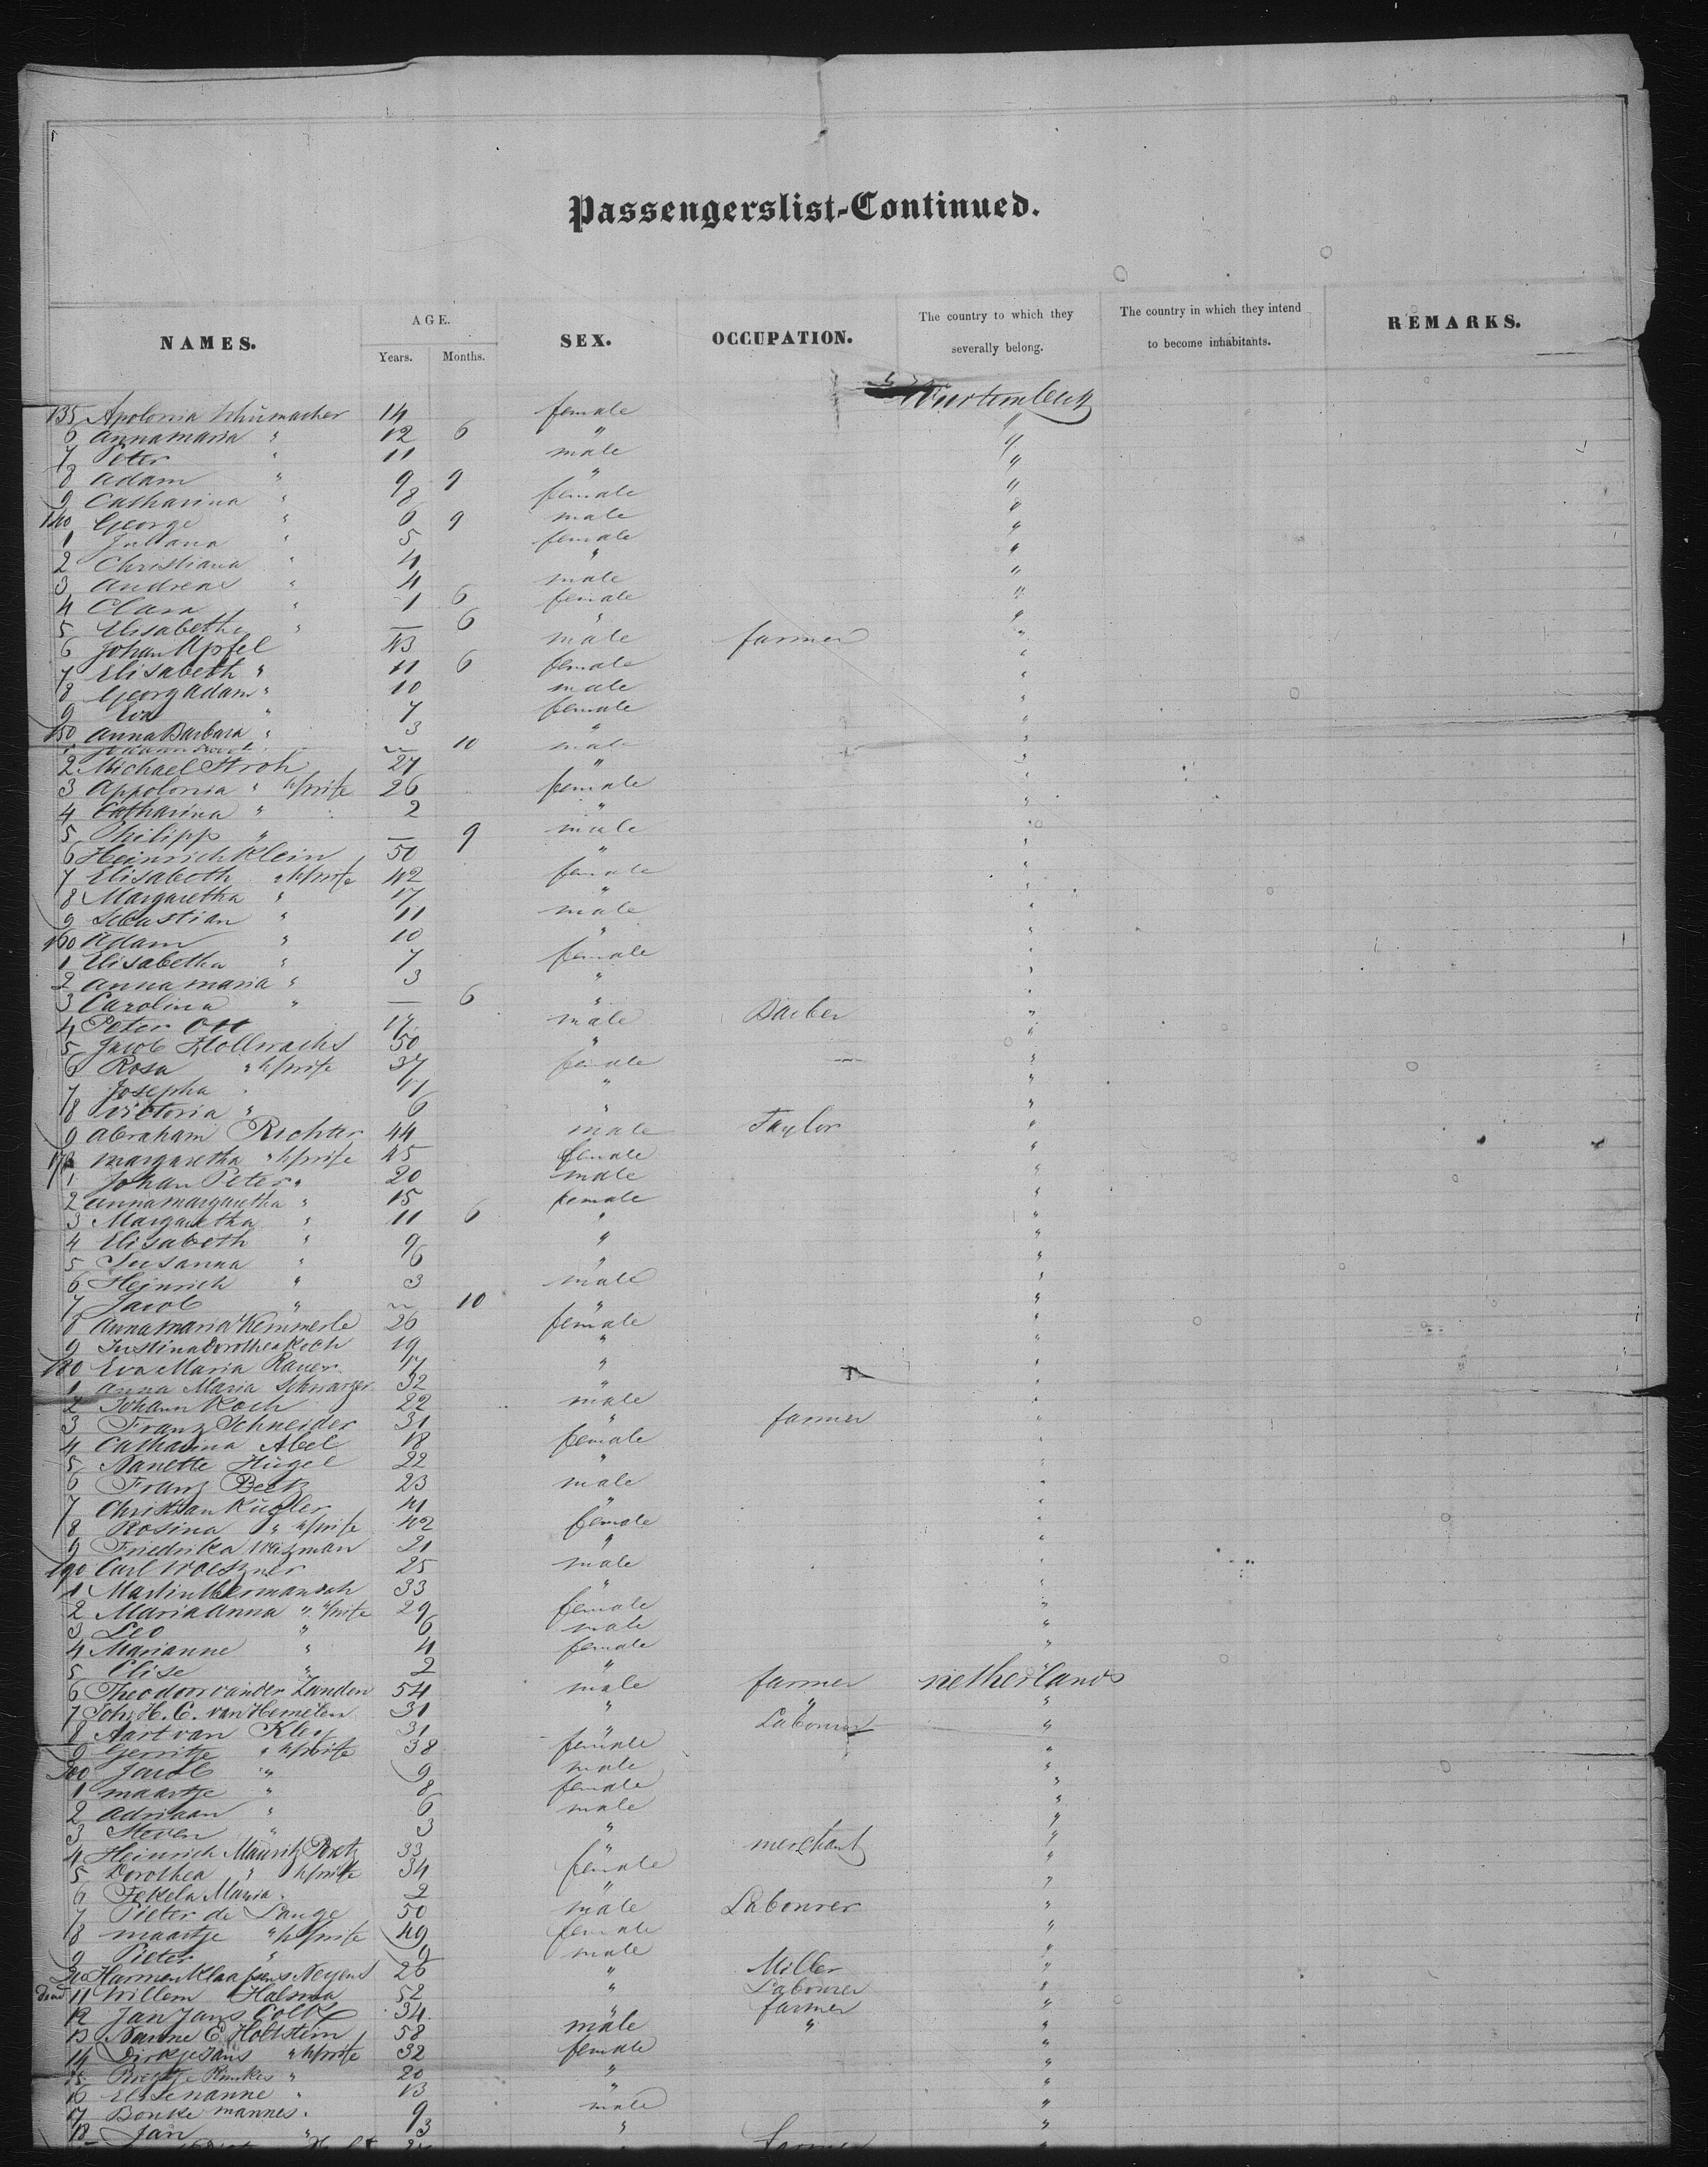 Passengerslist-Continued.
NAMES. AGE. Years. Months. SEX. OCCUPATION. The country to which they severally belong. The country in which they intend to become inhabitants. REMARKS.
135 Apolonia Schumacher 14 female Wurtemberg
6 Annamaria " 12 6 " "
7 Peter " 11 male "
8 Adam " 9 9 " "
9 Catharina " 8 female "
140 George " 6 9 male "
1 Juliana " 5 female "
2 Christiana " 4 " "
3 Andreas " 4 male "
4 Clara " 1 6 female "
5 Elisabetha " — 6 " "
6 Johan Apfel 43 male farmer "
7 Elisabeth " 11 6 female "
8 Georg Adam " 10 male "
9 Eva " 7 female "
150 Anna Barbara " 3 " "
10 male "
2 Michael Stroh 27 " "
3 Appolonia " h/wife 26 female "
4 Catharina " 2 " "
5 Philipp " — 9 male "
6 Heinrich Klein 50 " "
7 Elisabeth " h/wife 42 female "
8 Margaretha " 17 " "
9 Sebastian " 11 male "
160 Adam " 10 " "
1 Elisabetha " 7 female "
2 Anna maria " 3 " "
3 Carolina " — 6 " "
4 Peter Ott 17 male Barber "
5 Jacob Hollwachs 50 " "
6 Rosa " h/wife 37 female "
7 Josepha 11 " "
8 Victoria " 6 " "
9 Abraham Richter 44 male Taylor "
170 Margaretha " h/wife 45 female "
1 Johan Peter " 20 male "
2 Annamargaretha " 15 female "
3 Margaretha " 11 6 " "
4 Elisabeth " 9 " "
5 Susanna " 6 " "
6 Heinrich " 3 male "
7 Jacob " 10 " "
8 Annamaria Kemmerle 26 female "
9 Justina Dorothea Koch 19 " "
180 Eva Maria Rauer 17 " "
1 Anna Maria Schwarzer 32 " "
2 Johann Koch 22 male "
3 Franz Schneider 31 " farmer "
4 Catharina Abel 18 female "
5 Nanette Hügel 22 " "
6 Franz Beck 23 male "
7 Christian Kugler 41 " "
8 Rosina " h/wife 42 female "
9 Friedrika 21 " "
190 Carl 25 male "
1 Martin 33 " "
2 Maria Anna " h/wife 29 female "
3 Leo " 6 male "
4 Marianne " 4 female "
5 Elise " 2 " "
6 Theodoor van der Zanden 54 male farmer Netherlands
7 Joh. H. C. van Hemelen 31 " " "
8 Aart van Kley 31 " Labourer "
9 Gerritje " h/wife 38 female "
200 Jacob " 9 male "
1 Maartje " 8 female "
2 Adriaan " 6 male "
3 Steven " 3 " "
4 Heinrich Mauritz 33 " merchant "
5 Dorothea " h/wife 34 female "
6 Maria 2 " "
7 Pieter de Lange 50 male Labourer "
8 Maartje " h/wife 49 female "
9 Pieter " 9 male "
210 Harmen Klaassens 26 " Miller "
dead 11 Willem Halsma 52 " Labourer "
12 Jan Jans 34 " farmer "
13 Nanne C. Holtstein 58 male " "
14 " h/wife 32 female "
15 " 20 " "
16 13 " "
17 Bouke mannes 9 male "
18 Jan " 3 " "
farmer "